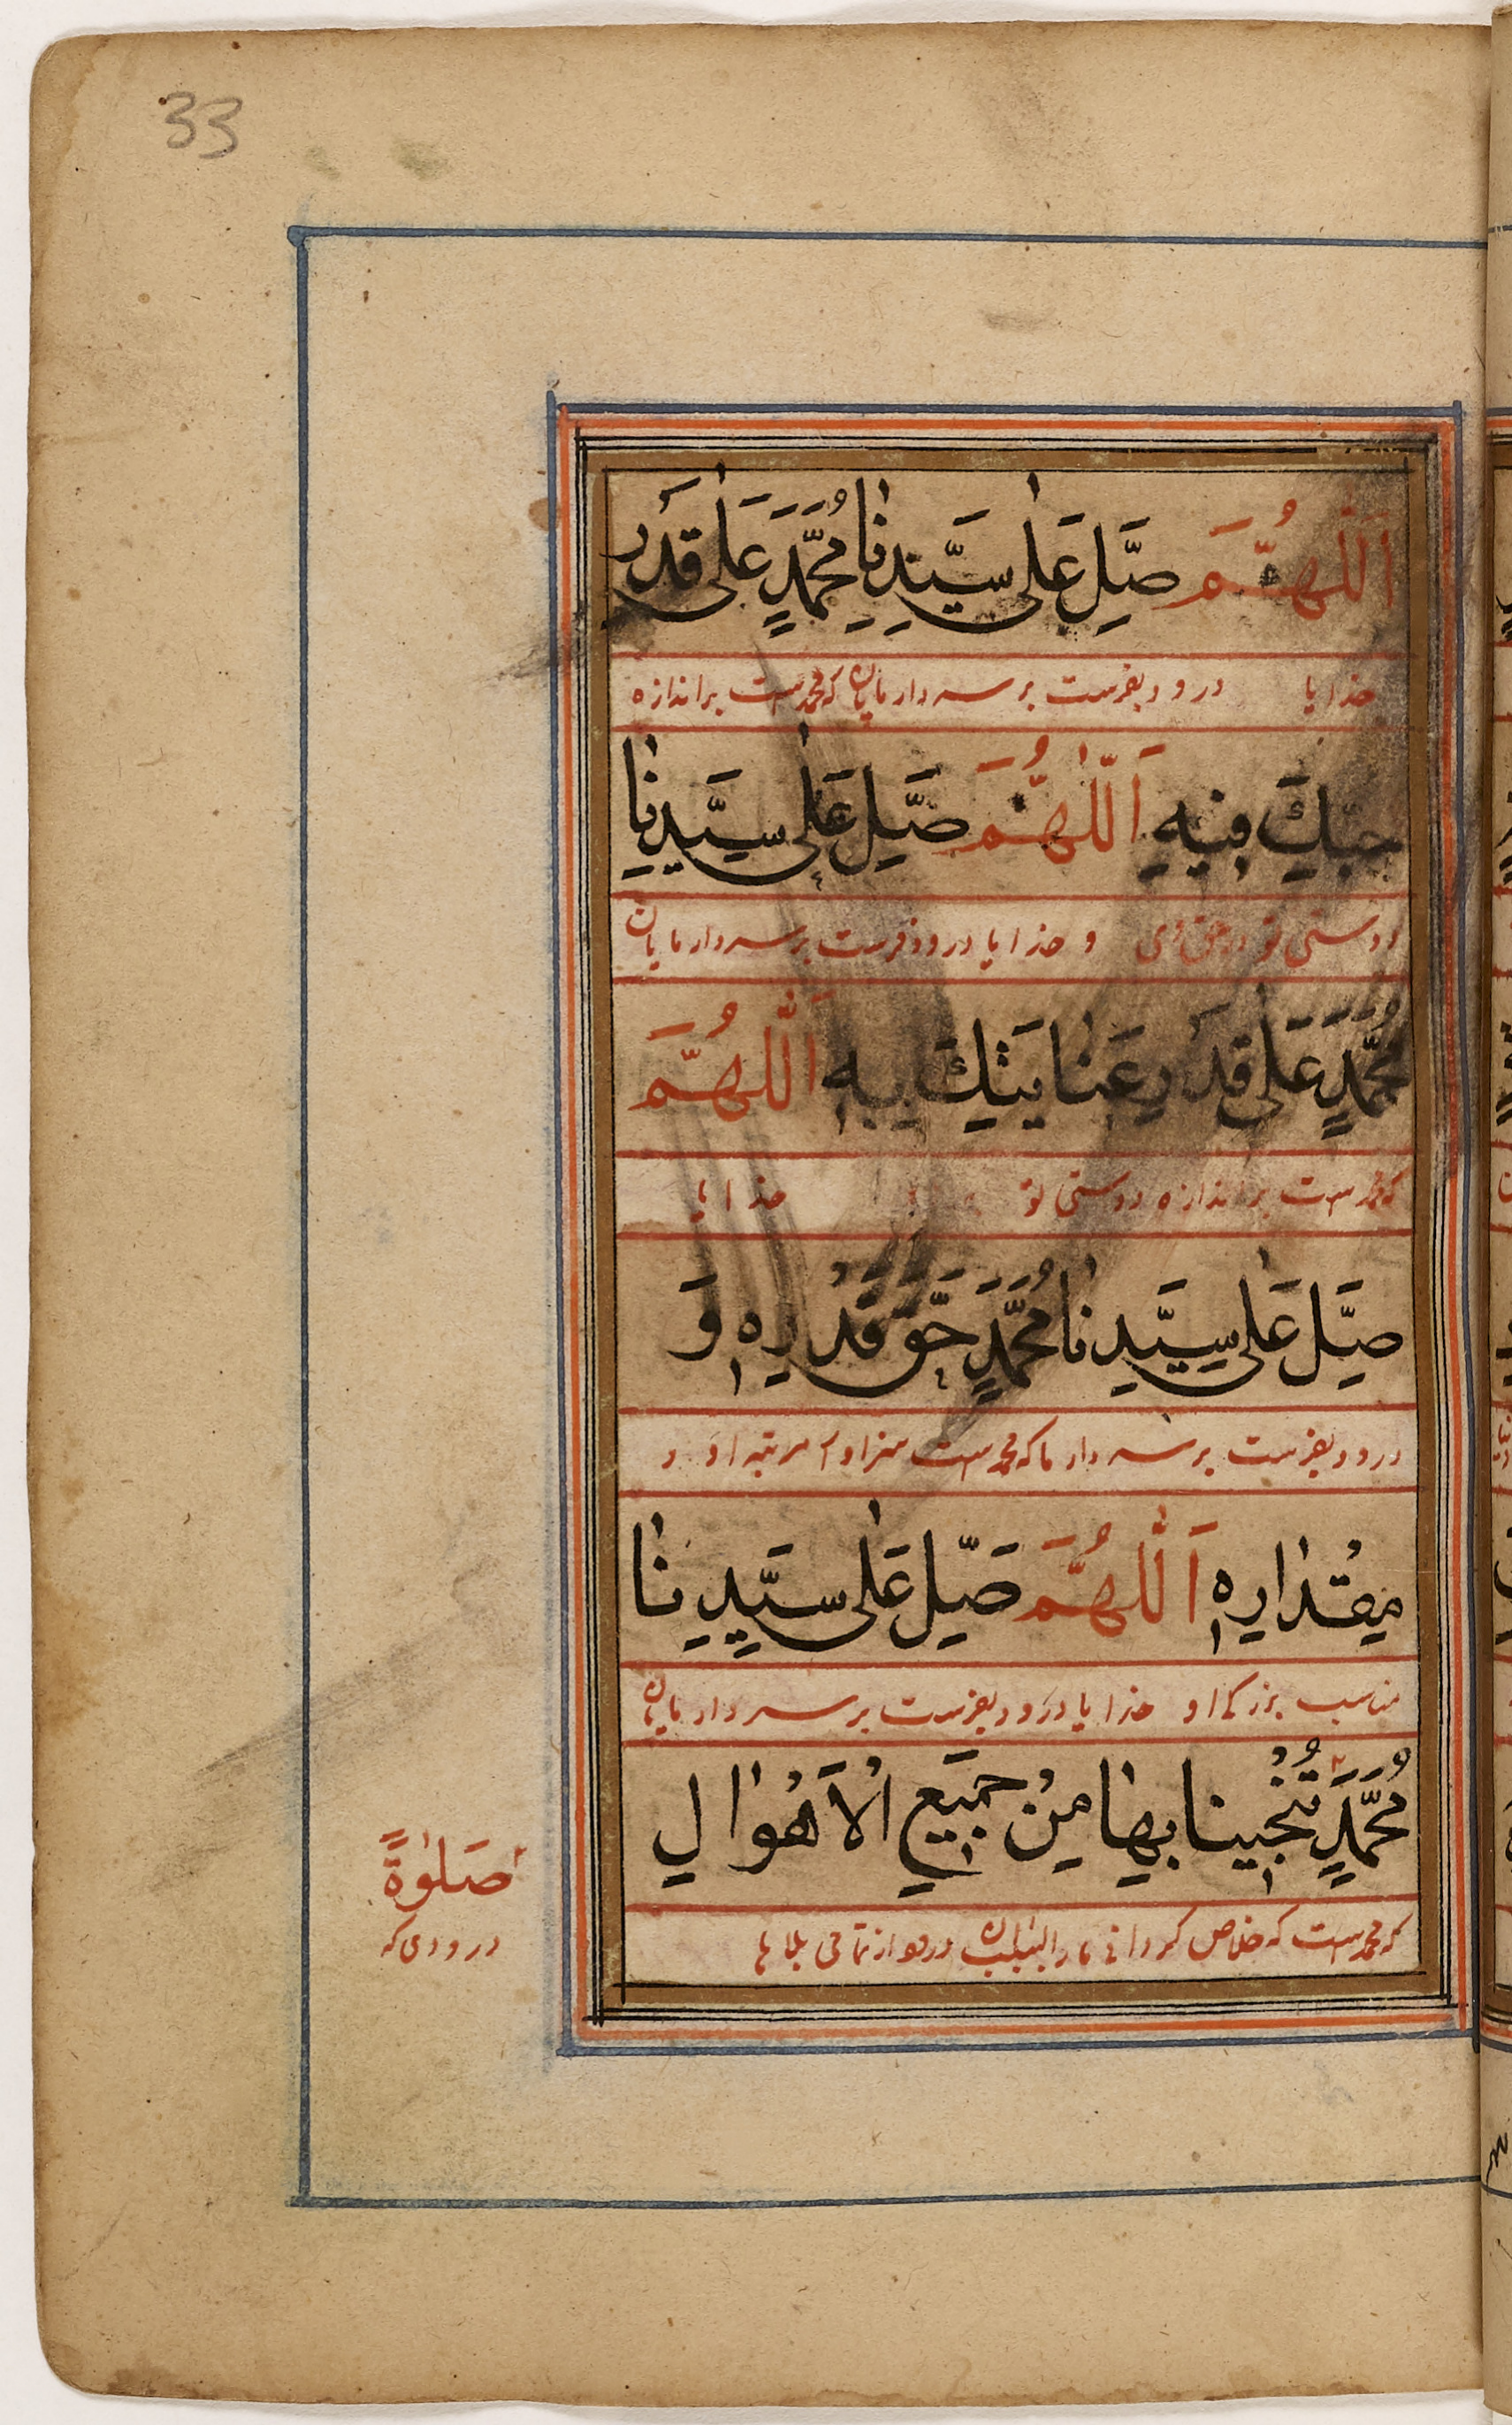 33
اَللّٰهُمَّ صَلِّ عَلٰى سَيِّدِنَا مُحَمَّدٍ عَلٰى قَدْرِ
خدایا درود بفرست بر سردار مایان که محمد است بر اندازه
حُبِّكَ فِيهِ اَللّٰهُمَّ صَلِّ عَلٰى سَيِّدِنَا
دوستی تو در حق وی و خدایا درود فرست بر سردار مایان
مُحَمَّدٍ عَلٰى قَدْرِ عَنَايَتِكَ بِهِ اَللّٰهُمَّ
که محمد است بر اندازه دوستی تو خدایا
صَلِّ عَلٰى سَيِّدِنَا مُحَمَّدٍ حَقَّ قَدْرِهِ وَ
درود بفرست بر سردار ما که محمد است سزاوار مرتبه او و
مِقْدَارِهِ اَللّٰهُمَّ صَلِّ عَلٰى سَيِّدِنَا
مناسب بزرگی او خدایا درود بفرست بر سردار مایان
مُحَمَّدٍ تُنْجِينَا بِهَا مِنْ جَمِيعِ الْاَهْوَالِ
که محمد است که خلاص گردانی مارا بسبب آن درود از تمامی بلاها
صَلٰوةً
درودی که